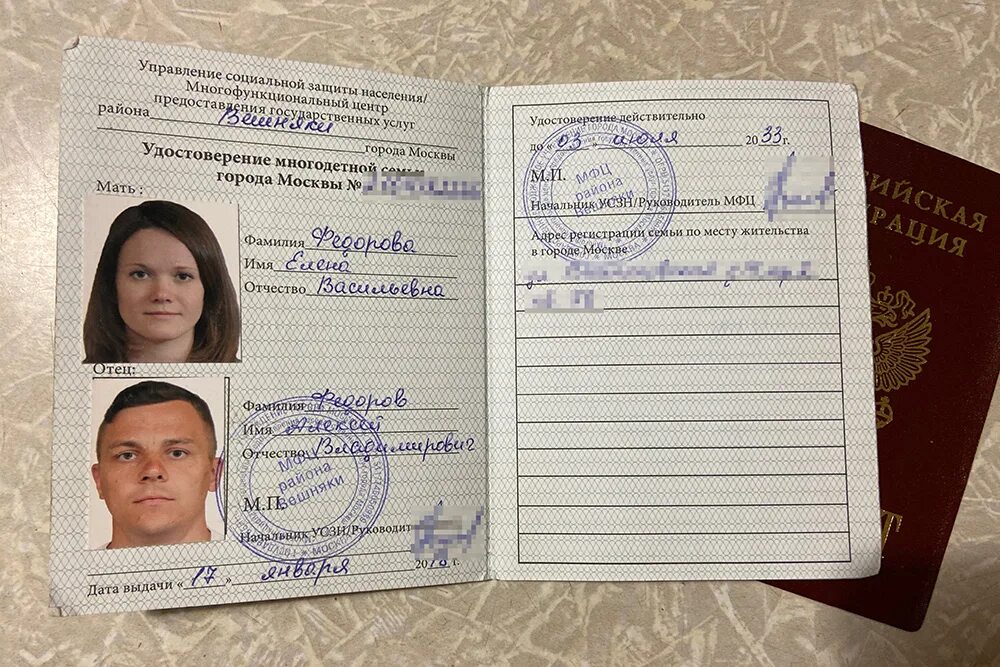 Управление социальной защиты населения/
Многофункциональный центр
предоставления государственных услуг
района Вешняки
города Москвы
Удостоверение многодетной семьи
города Москвы №
Мать :
Фамилия Федорова
Имя Елена
Отчество Васильевна
Отец:
Фамилия Федоров
Имя Алексей
Отчество Владимирович
МФЦ
района
Вешняки
М.П.
Начальник УСЗН/Руководит
Дата выдачи « 17 » января 20 г.
Удостоверение действительно
до « 03 » июля 2033 г.
МФЦ
района
Вешняки
М.П.
Начальник УСЗН/Руководитель МФЦ
Адрес регистрации семьи по месту жительства
в городе Москве
ул.
ИЙСКАЯ
РАЦИЯ
Т